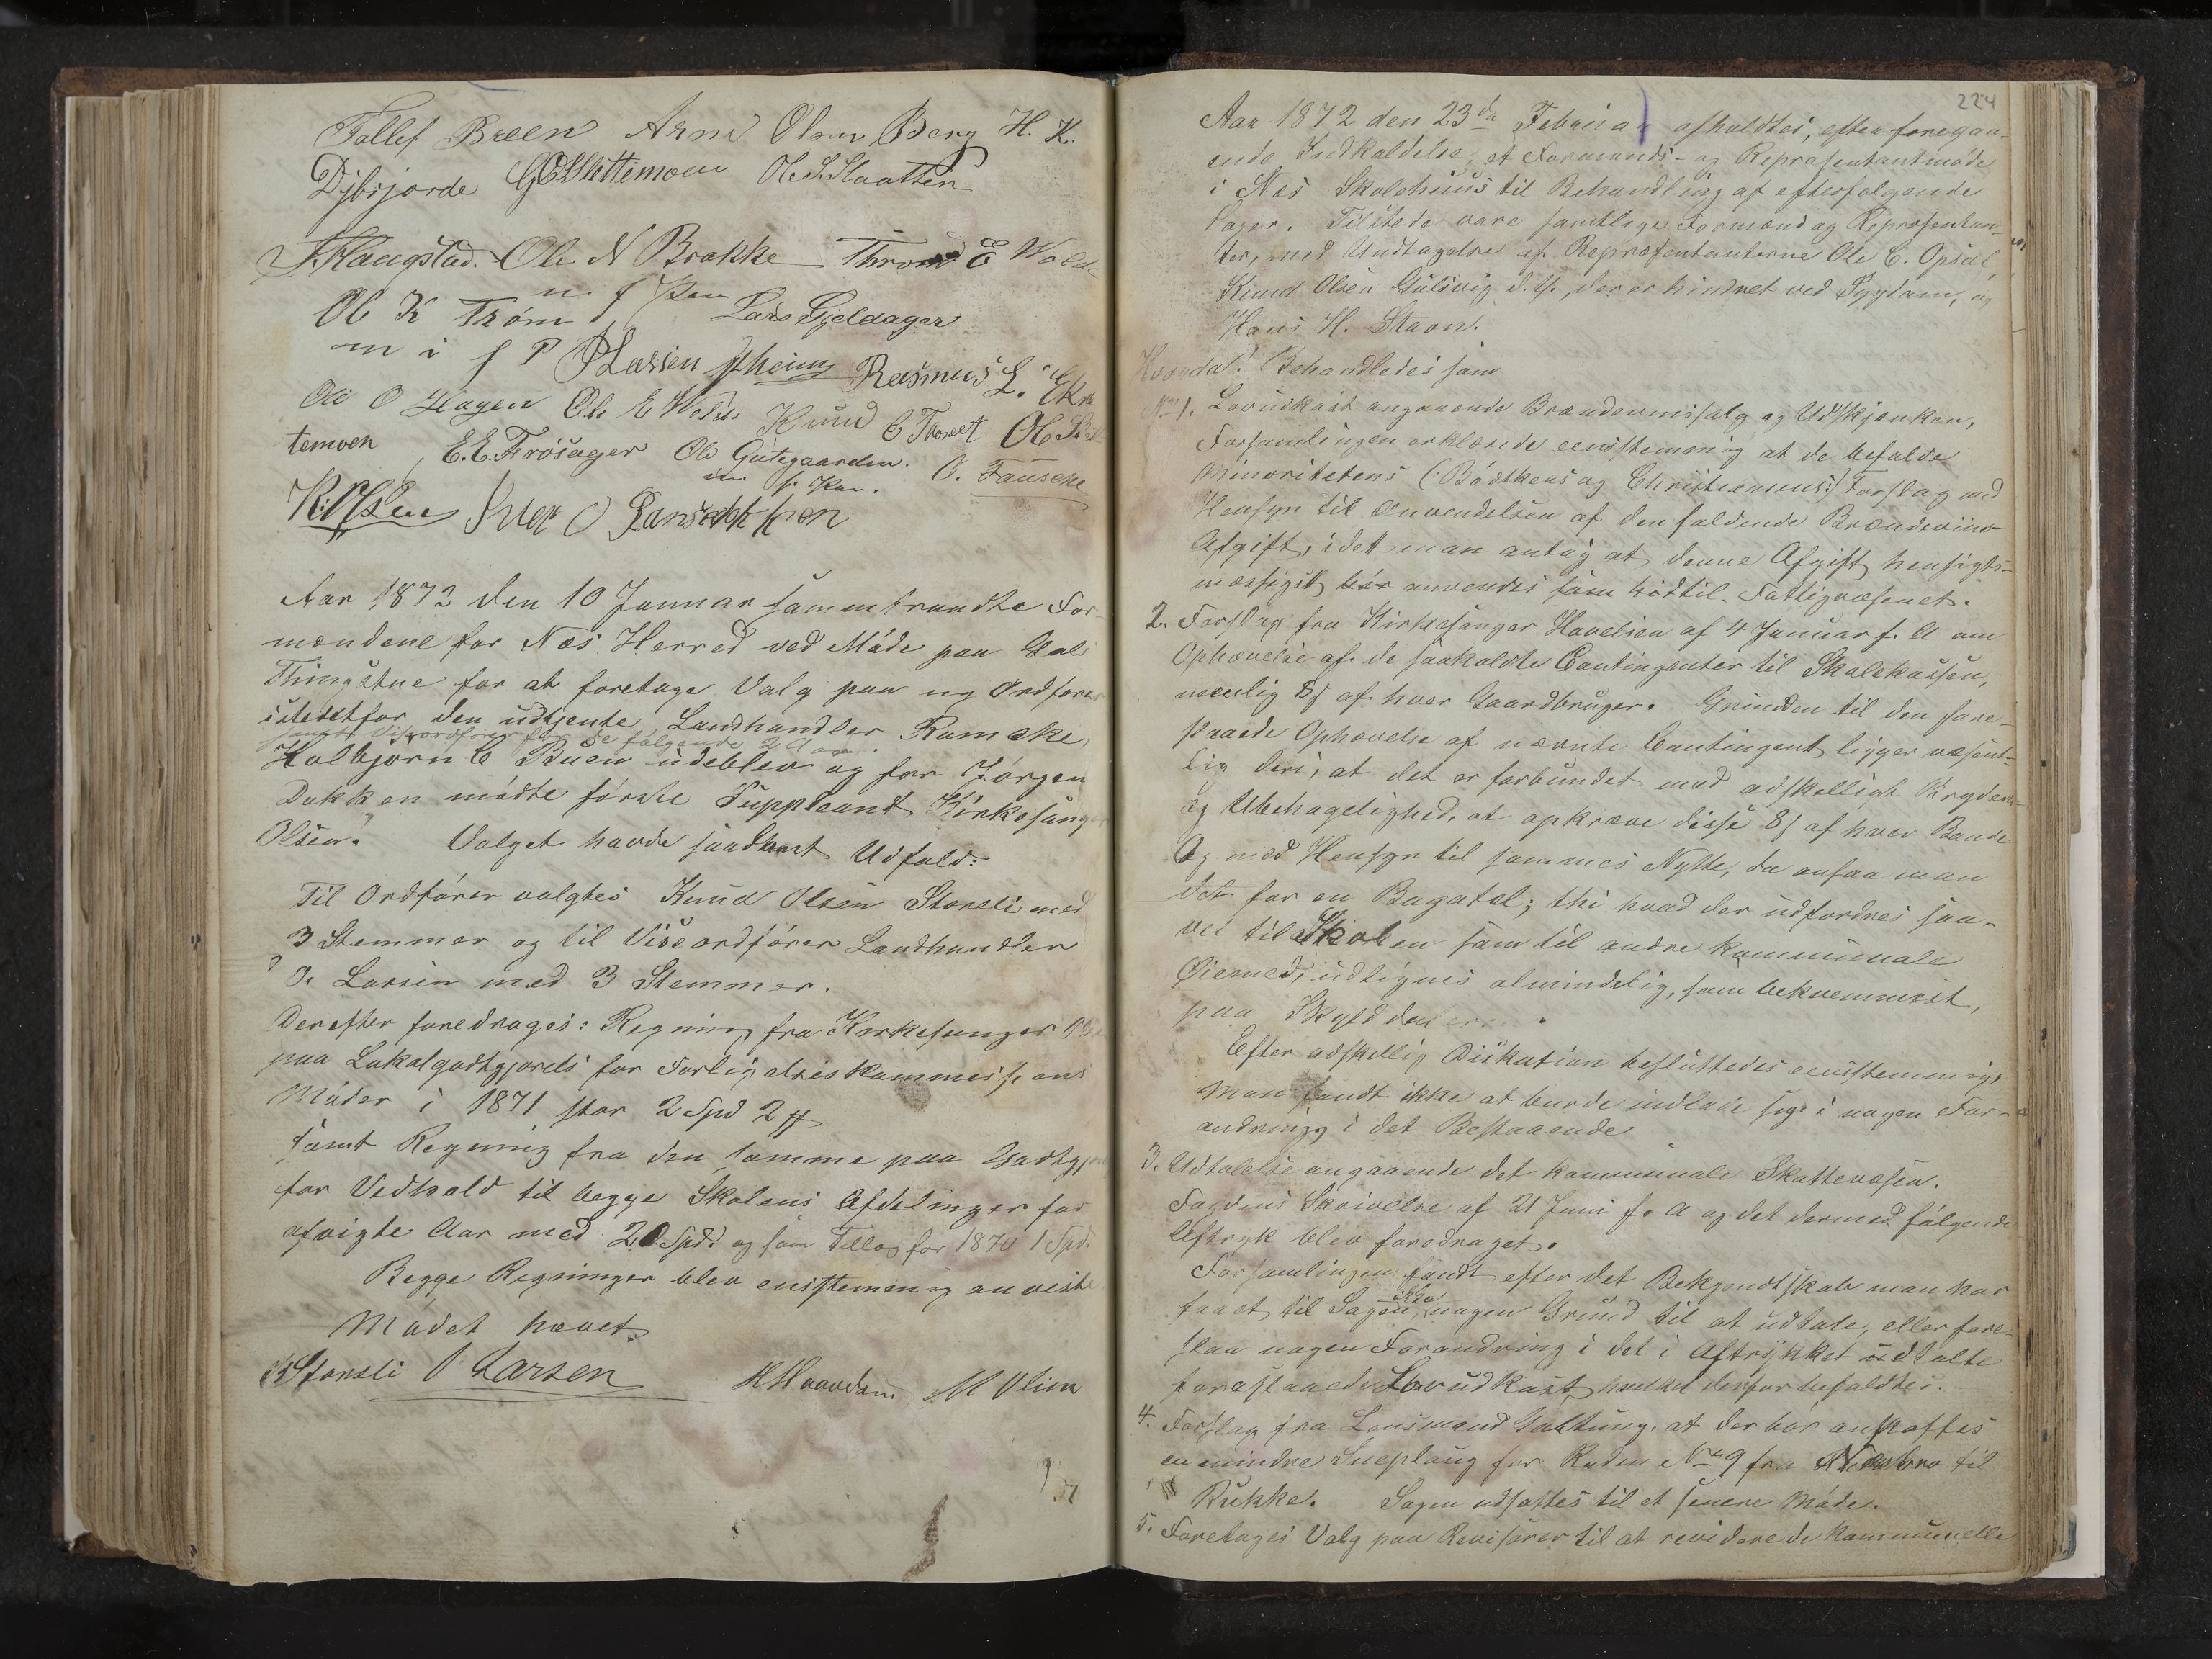 Tollef Breen Arne Olsen Berg H. K.
Dybsjorde Ole S. Slaatten
T. Haugstad. Ole N Brokke Thrond E Wold
Ol K Trøm Lars Gjeldager
m i f P P Larsen Rasmus L.
Ole O Hagen Ole E Wold Knud
temoen E. E. Trøsager Ole Gutegaarden. O. Fauske
K. Olsen
Aar 1872 den 10 Januar sammentraadte For-
mændene for Næs Herred ved Møde paa Gul
Thingstue for at foretage Valg paa ny Ordfører
istedetfor den udtjente Landhandler Ramske,
samt Viseordfører for de følgende 2 Aar.
Halbjørn C Buen udeblev og for Jørgen
Dokken mødte første Suppleant Kirkesanger
Olsen. Valget havde saadant Udfald:
Til Ordfører valgtes Knud Olsen Storeli med
3 Stemmer og til Viseordfører Landhandler
O. Larsen med 3 Stemmer.
Derefter foredrages: Regning fra Kirkesanger
paa Lokalgodtgjørels for Forligelseskommissions
Møder i 1871 stor 2 Spd 2
samt Regning fra den samme paa Godtgj
for Vedhold til begge Skolens Afdelinger for
afvigte Aar med 20 Spd. og som Tillæg for 1870 1 Spd.
Begge Regninger blev enstemmig anviste
Mødet hævet.
K Storeli O Larsen
224
Aar 1872 den 23de Februar afholdtes, efter foregaa-
ende Indkaldelse, et Formands- og Repræsentantmøde
i Nes Skolehuus til Behandling af efterfølgende
Sager. Tilstede vare samtlige Formænd og Repræsentan-
ter, med Undtagelse af Repræsentanterne Ole C. Opsal,
Knud Olsen Gulsvig d. y., der er hindret ved Sygdom, og
Hans H. Staon.
Behandledes som
No 1. Lovudkast angaaende Brændevinssalg og Udskjænken,
Forsamlingen erklærede eenstemmig at de bifalde
Minoritetens (: Bødtkers og Christensens :) Forslag med
Hensyn til Anvendelsen af den faldende Brændeviins-
Afgift, idet man antog at denne Afgift hensigts-
mæssigst bør anvendes som tiødtil Fattigvæsenet.
2. Forslag fra Kirkesanger Havelsen af 4 Januar f. A om
Ophævelse af de saakaldte Contingenter til Skolekassen,
nemlig 8 s af hver Gaardbruger. Grunden til den fore-
slaaede Ophævelse af nævnte Contingent ligger væsent-
lig deri, at det er forbundet med adskilligt Kryderi
og Ubehagelighed, at opkræve disse 8 s af hver Bonde
Og med Hensyn til sammes Nytte, da ansaa man
det for en Bagatel; thi hvad der udfordres saa-
vel til Skolen som til andre kommunale
Øiemed, udlignes almindelig, som bekvemmest,
paa Skylddaleren.
Efter adskillig Diskution besluttedes eenstemmig,
Man fandt ikke at burde indlade sig i nogen For-
andring i det Bestaaende
3. Udtalelse angaaende det kommunale Skattevæsen.
Fogdens Skrivelse af 21 Juni f. A og det dermed følgende
Aftryk blev foredraget.
Forsamlingen fandt efter det Bekjendtskab man har
faaet til Sagen, ikke nogen Grund til at udtale, eller fore-
slaa nogen Forandring i det i Aftrykket udtalte
foreslaaede Lovudkast, hvilket derfor bifaldtes.
4. Forslag fra Lensmand Galtung, at der bør anskaffes
en mindre Sneplaug for Roden No 9 fra Nesbro til
Bukke. Sagen udsattes til et senere Møde.
5. Foretages Valg paa Revisorer til at revidere de kommunelle